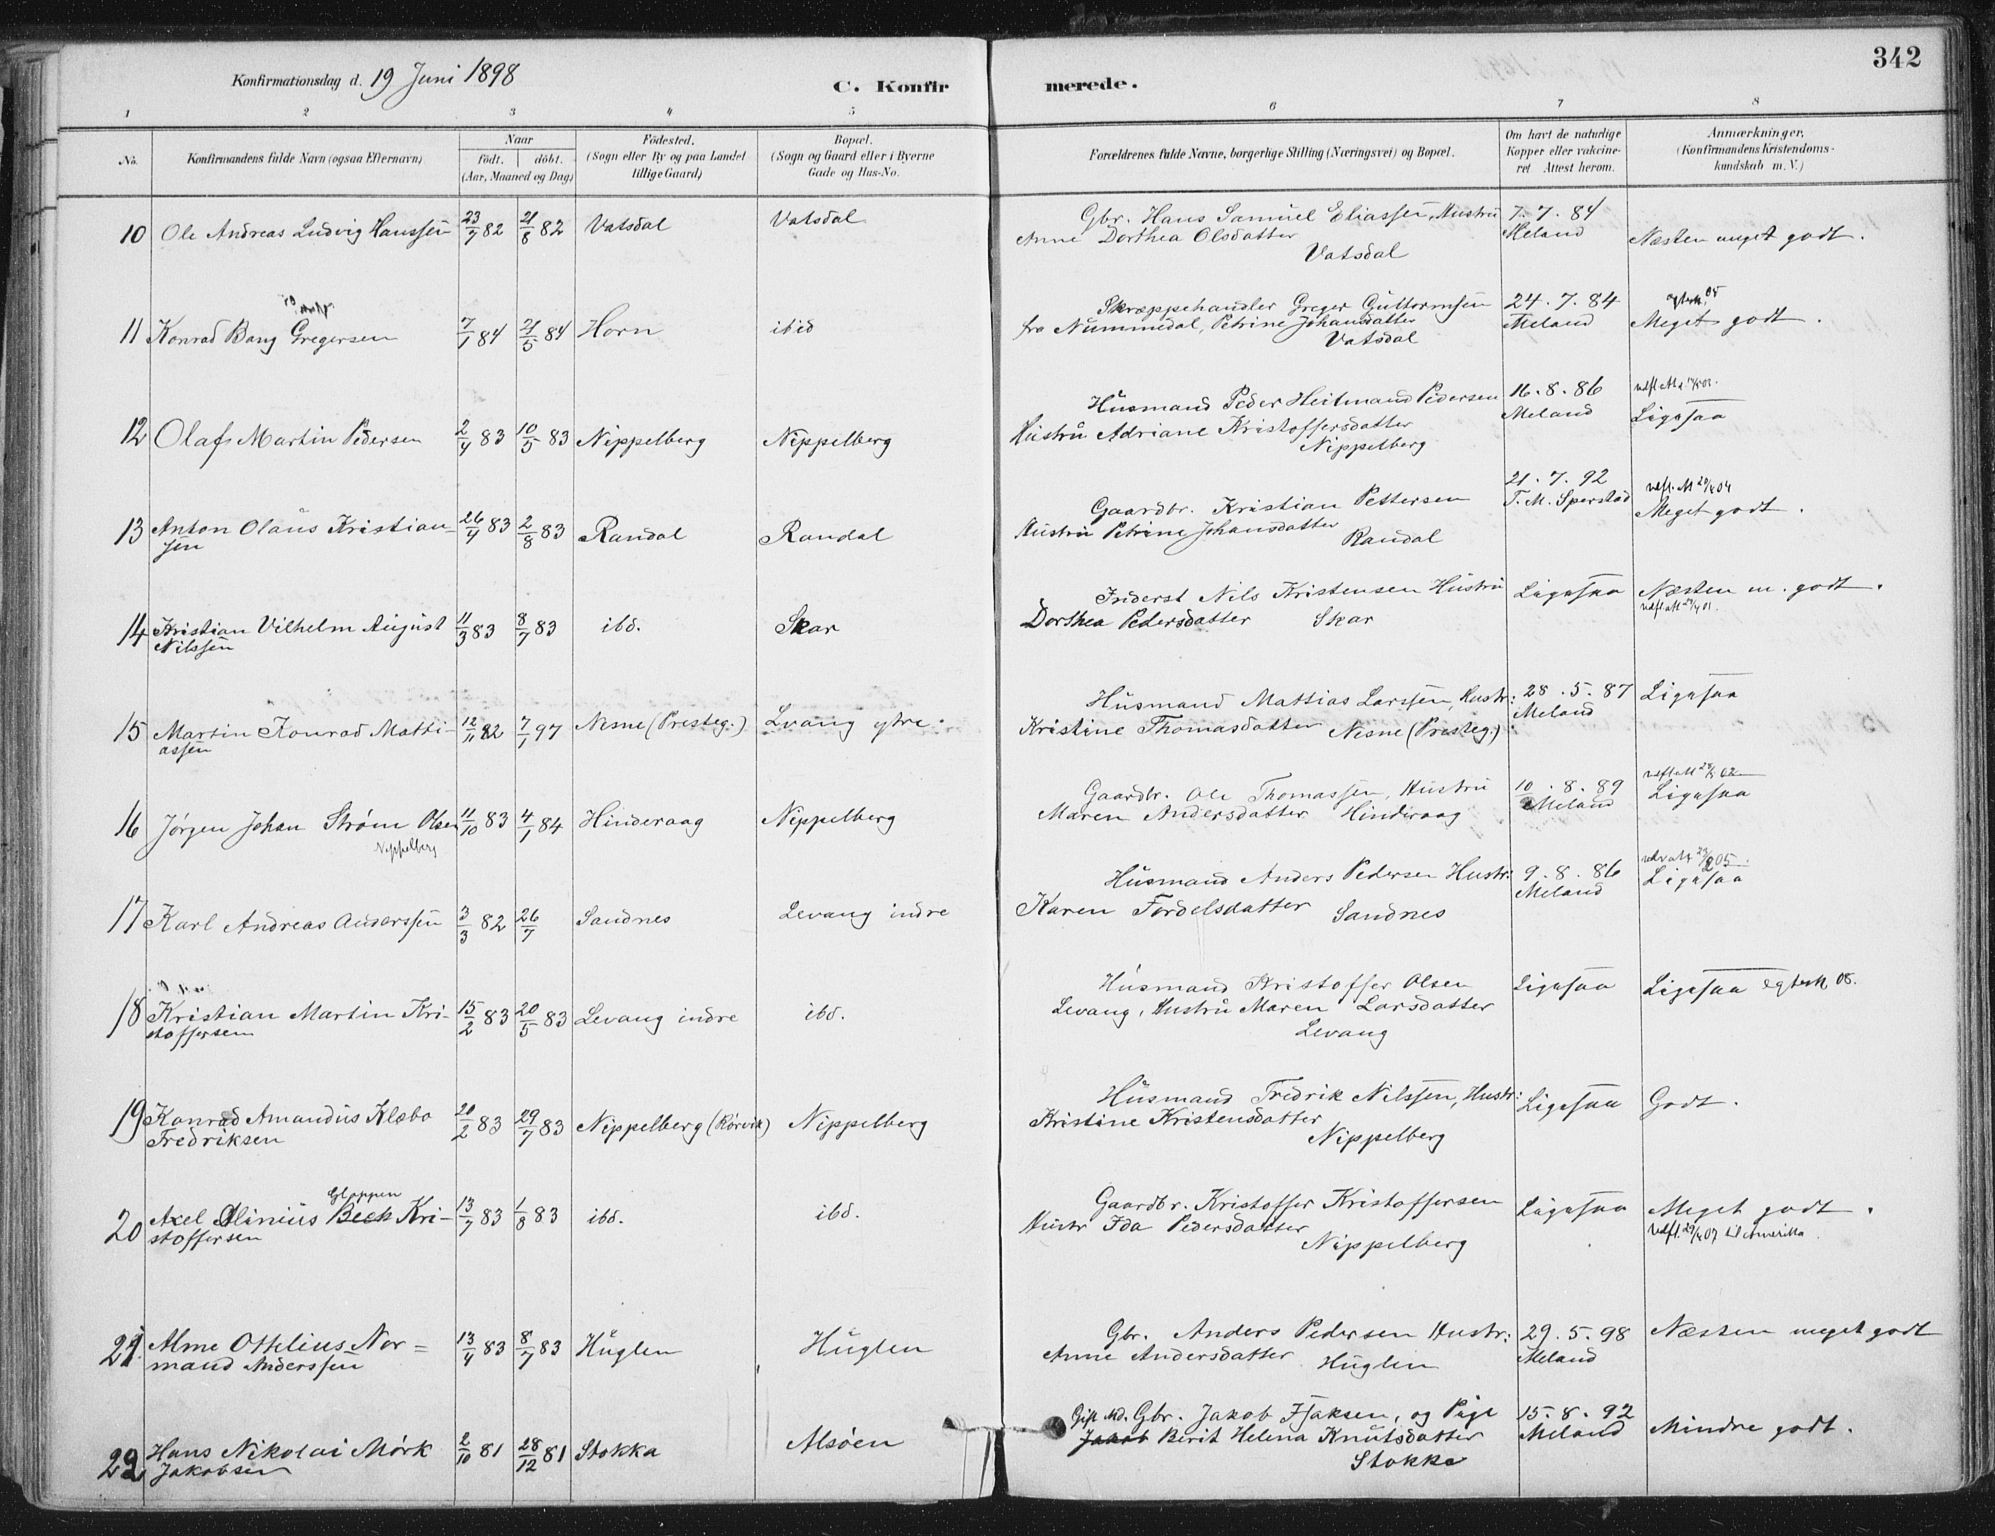 342
Konfirmationsdag d. 19 Juni 1898
C. Konfir merede.
1 2 3 4 5 6 7 8
No. Konfirmandens fulde Navn (ogsaa Efternavn)
Naar
födt. döbt.
(Aar, Maaned og Dag)
Födested.
(Sogn eller By og paa Landet
tillige Gaard)
Bopæl.
(Sogn og Gaard eller i Byerne
Gade og Hus-No.
Forældrenes fulde Navne, borgerlige Stilling (Næringsvei) og Bopæl.
Om havt de naturlige
Kopper eller vakcine-
ret Attest herom.
Anmærkninger,
(Konfirmandens Kristendoms-
kundskab m. V.)
10 Ole Andreas Ludvig Hanssen 23/7 82 21/8 82 Vatsdal Vatsdal
Gbr. Hans Samuel Eliassen, Hustru 7. 7. 84
Anne Dorthea Olsdatter Meland Næsten meget godt.
Vatsdal
11 Konrad Bang Gregersen 7/1 84 21/5 84 Horn ibid
Skræppehandler Greger Guttormsen 24. 7. 84
fra Nummedal, Petrine Johansdatter Meland Meget godt.
Vatsdal
12 Olaf Martin Pedersen 2/4 83 10/5 83 Nippelberg Nippelberg
Husmand Peder Heitmand Pedersen 16. 8. 86
Hustru Adriane Kristoffersdatter Meland Ligesaa
Nippelberg
13 Anton Olaus Kristian-
sen 26/4 83 2/8 83 Randal Randal
Gaardbr. Kristian Pettersen 21. 7. 92
Hustru Petrine Johansdatter T. M. Sperstad Meget godt.
Randal
14 Kristian Vilhelm August
Nilssen 11/3 83 8/7 83 ibd. Skar
Inderst Nils Kristensen Hustru Ligesaa Næsten m. godt.
Dorthea Pedersdatter Skar
15 Martin Konrad Matti-
assen 12/11 82 7/1 97 Nesne (Presteg.) Levang ytre.
Husmand Mattias Larssen, Hustr: 28. 5. 87 Ligesaa
Kristine Thomasdatter Nesne (Presteg.) Meland
16 Jørgen Johan Strøm Olsen 11/10 83 4/1 84 Hinderaag Nippelberg
Nippelberg
Gaardbr. Ole Thomassen, Hustru 10. 8. 89
Maren Andersdatter Hinderaag Meland Ligesaa
17 Karl Andreas Anderssen 3/3 82 26/7 Sandnes Levang indre
Husmand Anders Pedersen Hustr: 9. 8. 86 Ligesaa
Karen Fordelsdatter Sandnes Meland
18 Kristian Martin Kri-
stoffersen 15/2 83 20/5 83 Levang indre ibd.
Husmand Kristoffer Olsen Ligesaa Ligesaa
Levang, Hustru Maren Larsdatter
Levang
19 Konrad Amandus Klæbo
Fredriksen 20/2 83 29/7 83 Nippelberg (Rørvik) Nippelberg
Husmand Fredrik Nilssen, Hustr: Ligesaa Godt.
Kristine Kristensdatter
Nippelberg
20 Axel Olinius Beck Kri- Gloppen
stoffersen 13/7 83 1/8 83 ibd. ibd.
Gaardbr. Kristoffer Kristoffersen Ligesaa Meget godt.
Hustr Ida Pedersdatter
Nippelberg til Amerika
21 Alme Othelius Nor=
mand Anderssen 13/4 83 8/7 83 Huglen Huglen
Gbr. Anders Pedersen Hustr: 29. 5. 98 Næsten meget godt
Anne Andersdatter Huglen Meland
22 Hans Nikolai Mørk
Jakobsen 2/10 81 28/12 81 Stokka Alsøen
Gift Md. Gbr. Jakob Isaksen, og Pige 15. 8. 92
Jakob Berit Helena Knutsdatter Meland Mindre godt.
Stokka